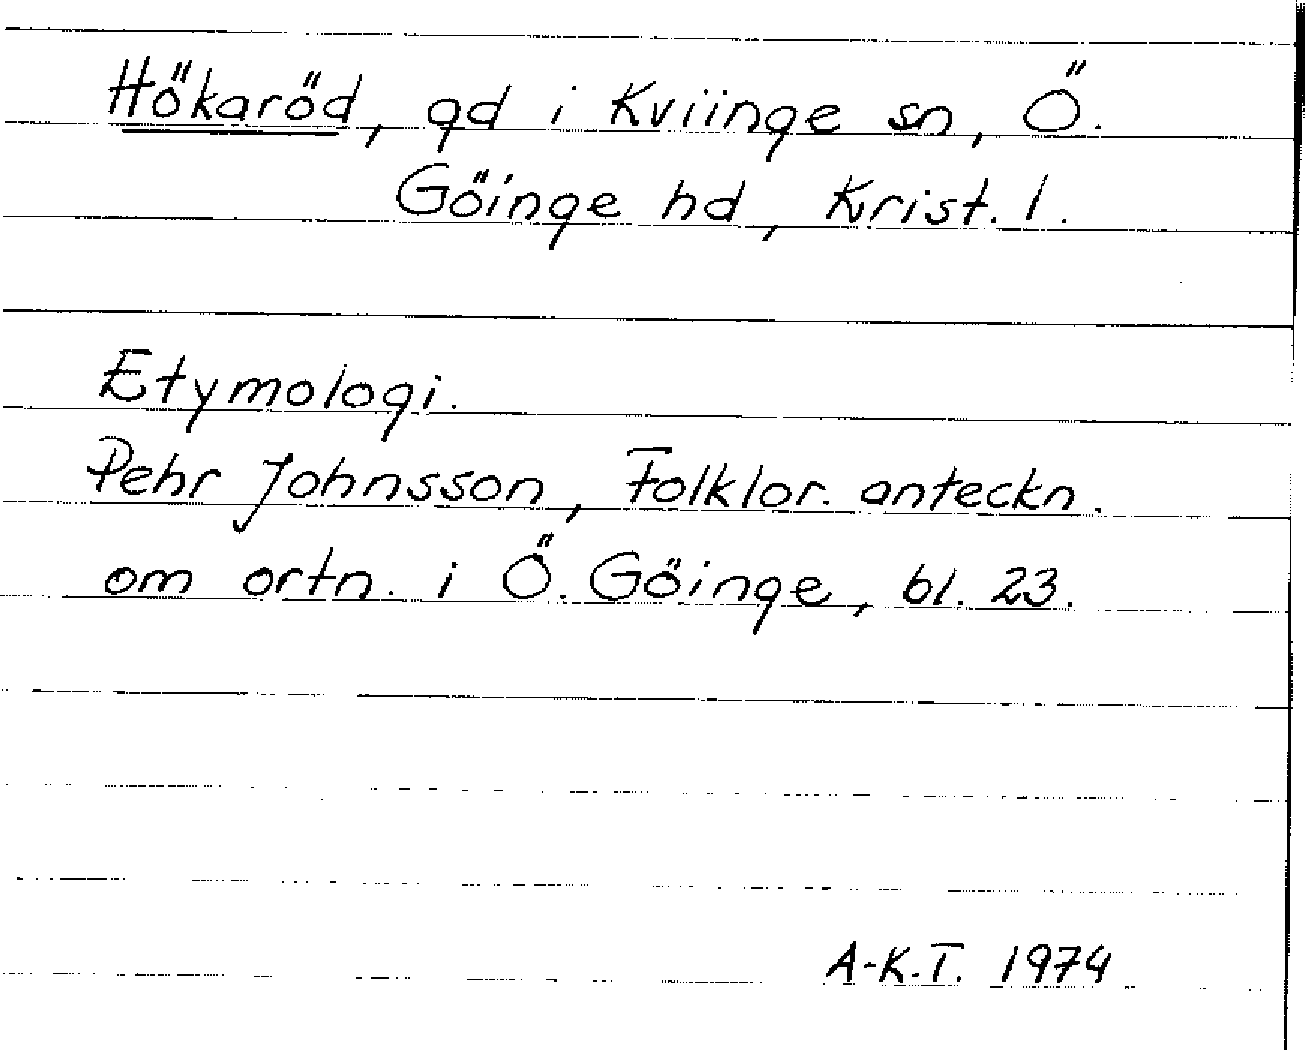 Hökaröd, gd i Kviinge sn, Ö.
Göinge hd, Krist. l.
Etymologi.
Pehr Johnsson, Folklor. anteckn.
om ortn. i Ö. Göinge, bl. 23.
A-K.T. 1974